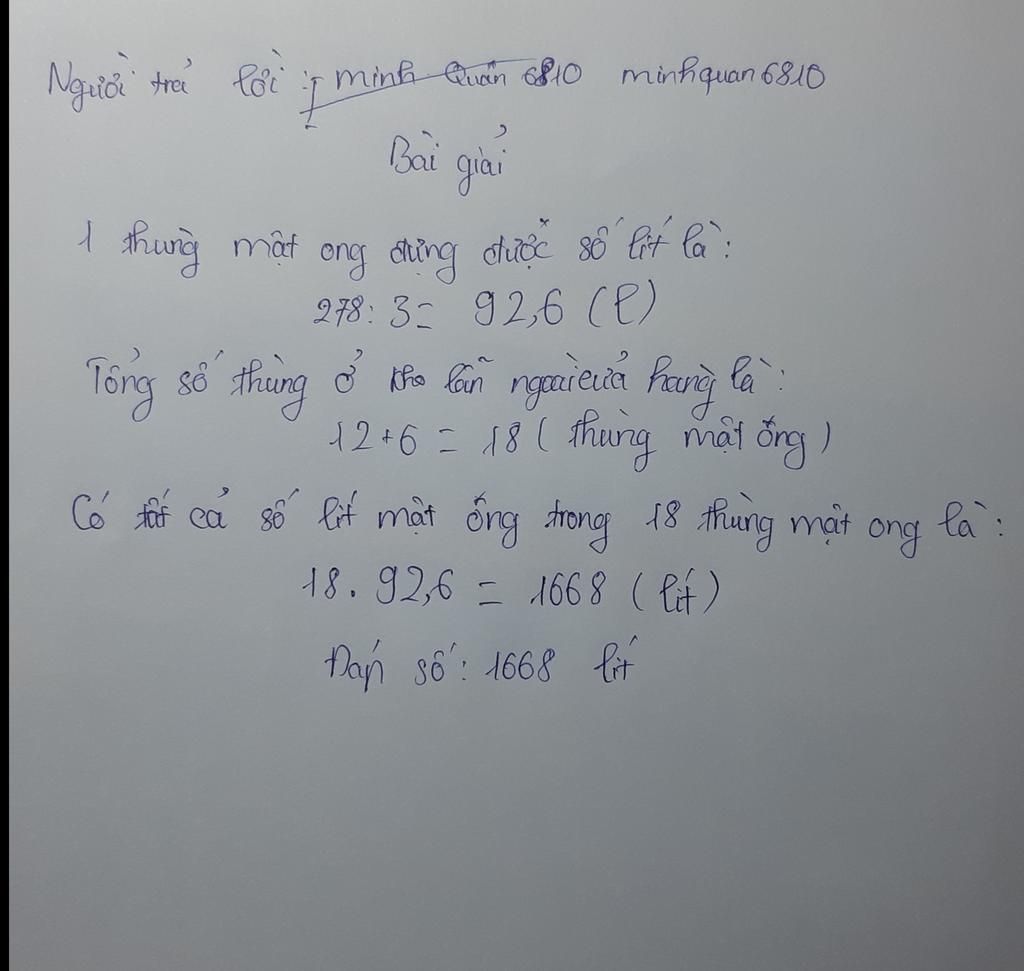 Người trả lời : minh Quân 6810 minhquan6810
Bài giải
1 thùng mật ong đựng được số lít là:
278 : 3 = 92,6 (l)
Tổng số thùng ở kho lẫn ngoài cửa hàng là:
12+6 = 18 ( thùng mật ong)
Có tất cả số lít mật ong trong 18 thùng mật ong là:
18 . 92,6 = 1668 (lít)
Đáp số: 1668 lít